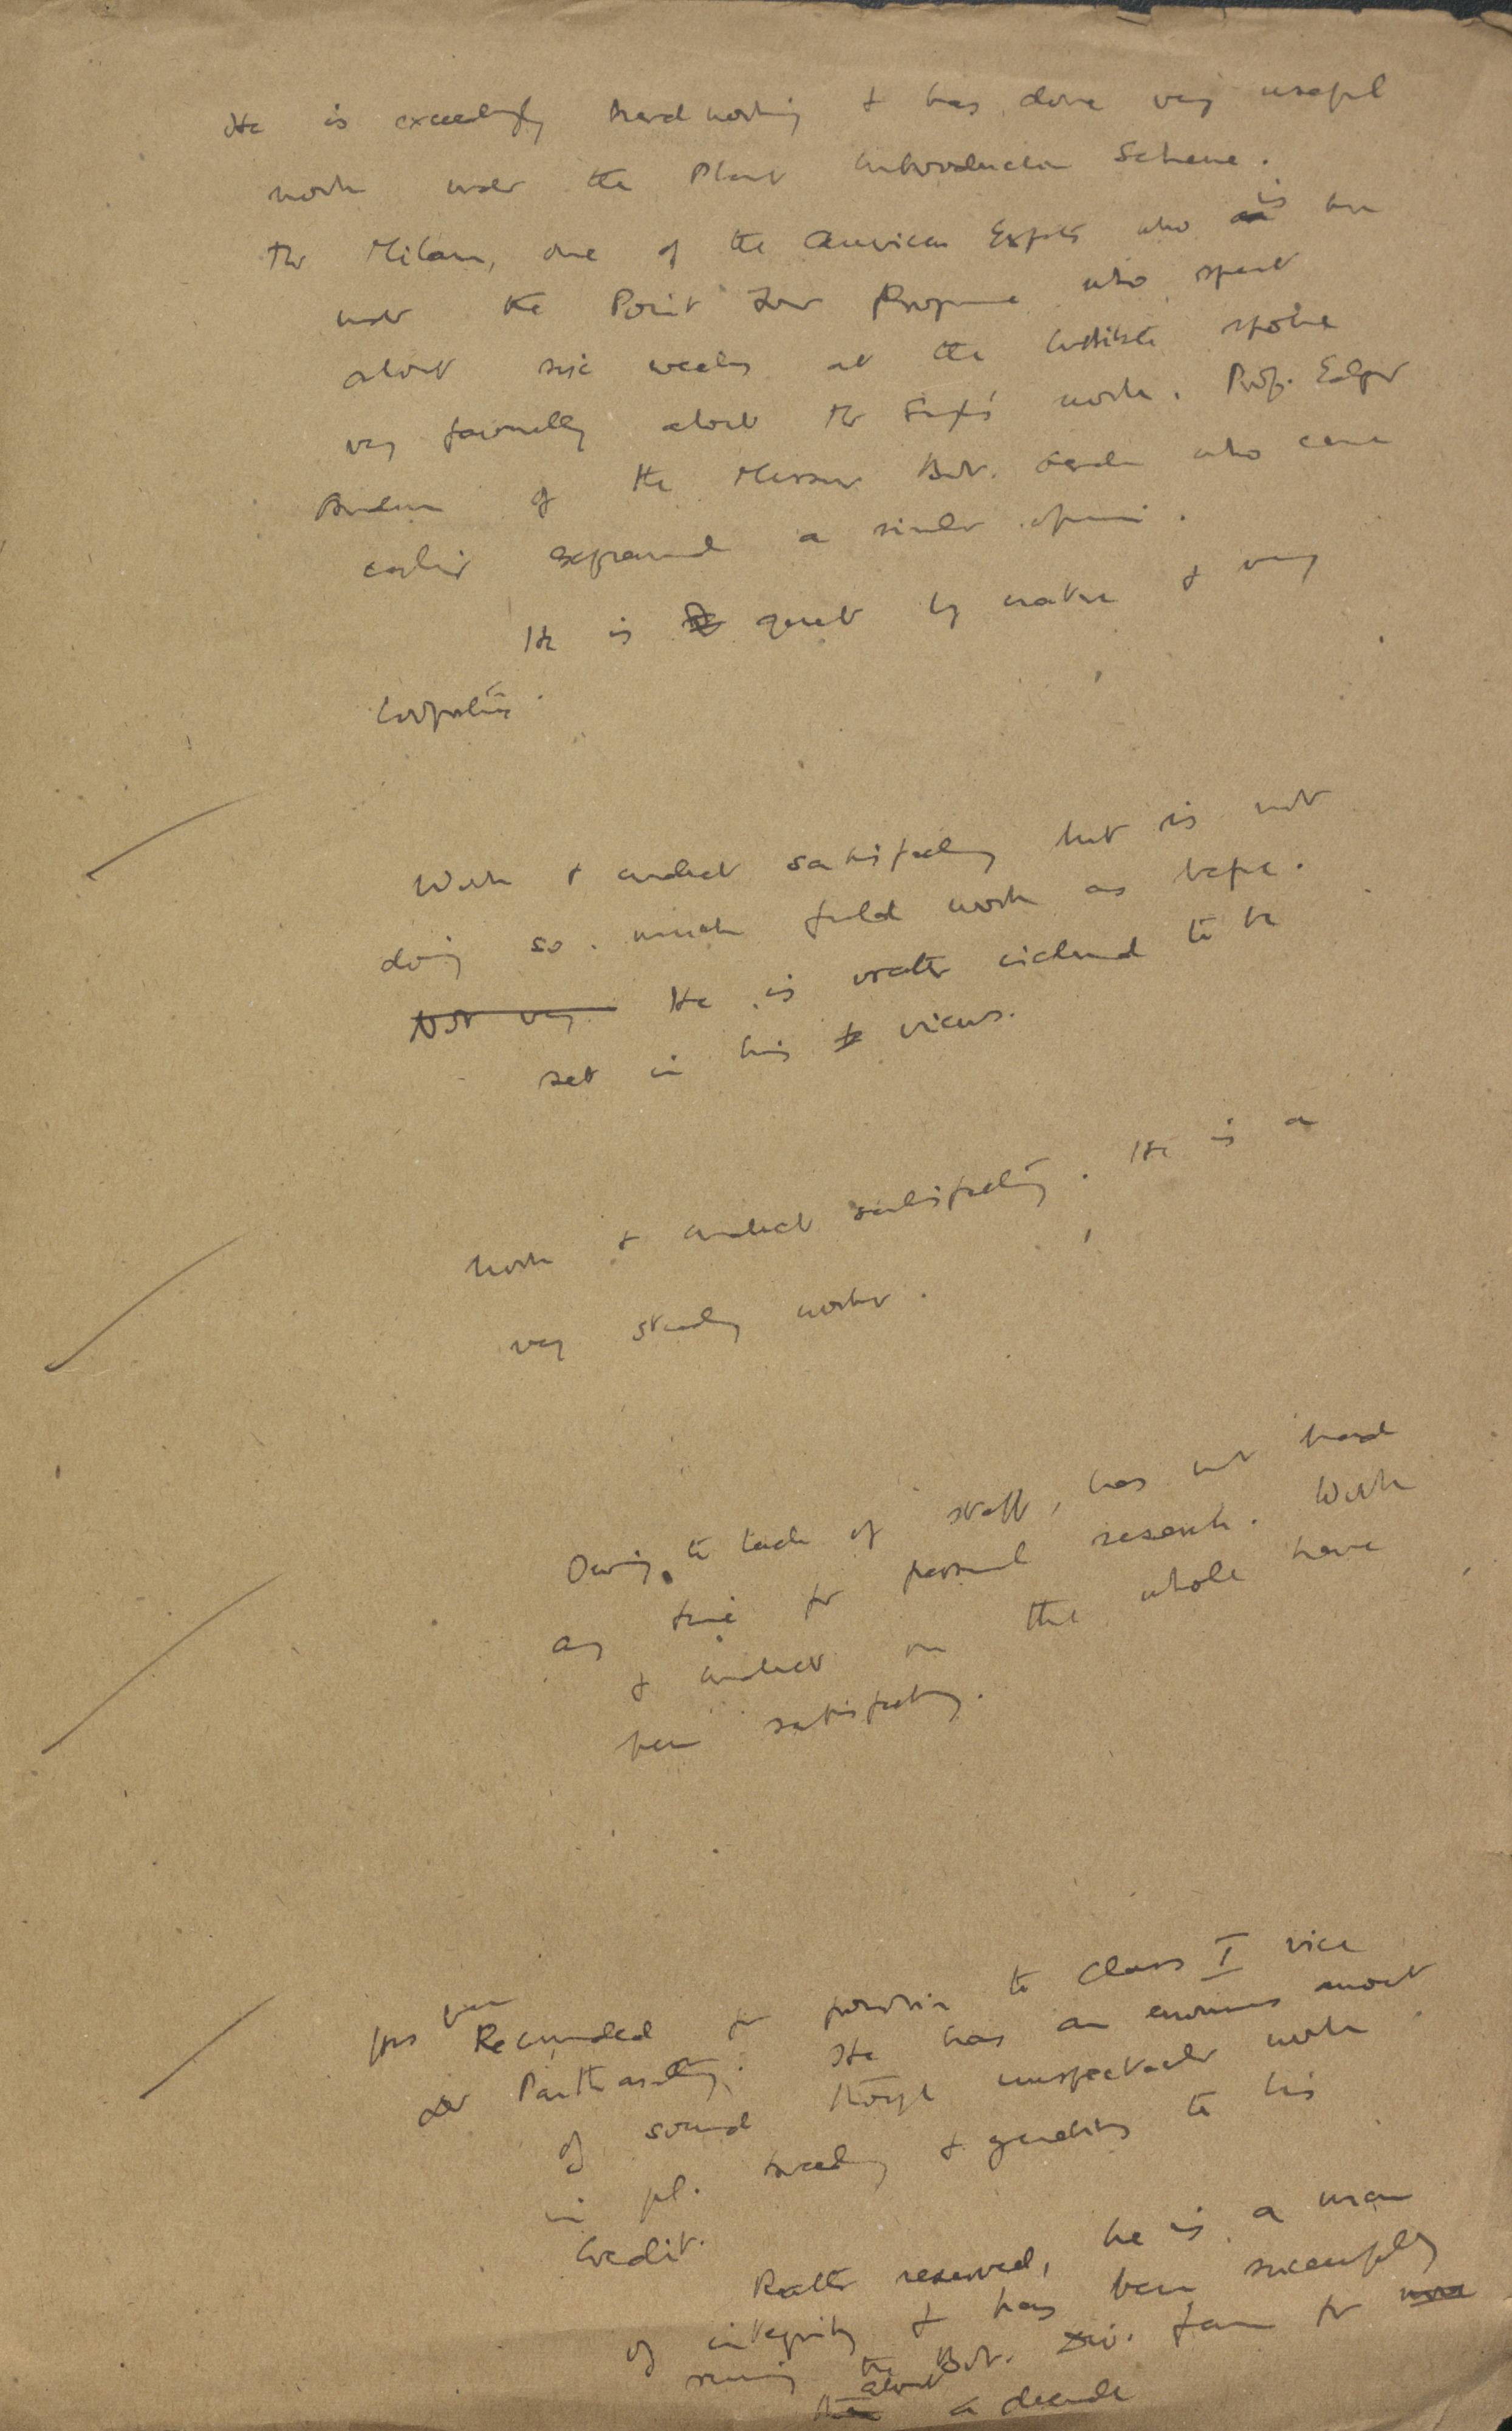 He is exceedingly hard working & has done very useful
work under the Plant Introduction Scheme.
Mr Milam, one of the American Experts who is here
under the Point Four Programme who spent
about six weeks at the Institute spoke
very favourably about Mr Singh's work. Prof. Edgar
Anderson of the Missouri Bot. Garden who came
earlier expressed a similar opinion.
He is quiet by nature & very
cooperative.
Work & conduct satisfactory but is not
doing so much field work as before.
Not very He is rather inclined to be
set in his views.
Work & conduct satisfactory. He is a
very steady worker.
Owing to lack of staff, has not had
any time for personal research. Work
& conduct on the whole have
been satisfactory.
Has been Recommended for promotion to Class I vice
Dr Parthasarathy. He has an enormous amount
of sound though unspectacular work
in pl. breeding & genetics to his
credit.
Rather reserved, he is a man
of integrity & has been successfully
running the Bot. Div. farm for
about a decade